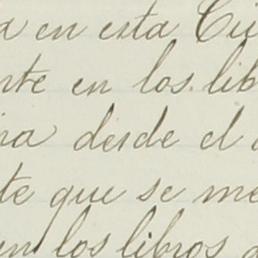 a en esta Ciu
nte en los lib
na desde el a
te que se me
en los libros d